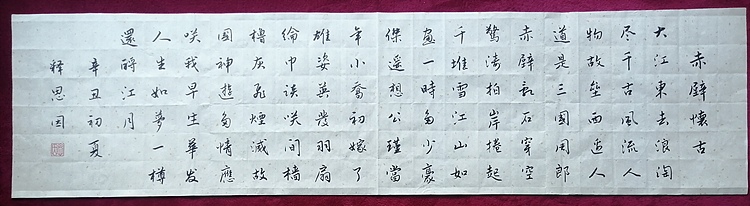 赤壁懷古
大江東去浪淘
尽千古風流人
物故壘西邊人
道是三國周郎
赤壁乱石穿空
驚涛拍岸捲起
千堆雪江山如
畫一時多少豪
傑遥想公瑾當
年小喬初嫁了
雄姿英發羽扇
綸巾談咲間檣
櫓灰飛煙滅故
國神遊多情應
咲我早生華发
人生如夢一樽
還酹江月
辛丑初夏
釋思因